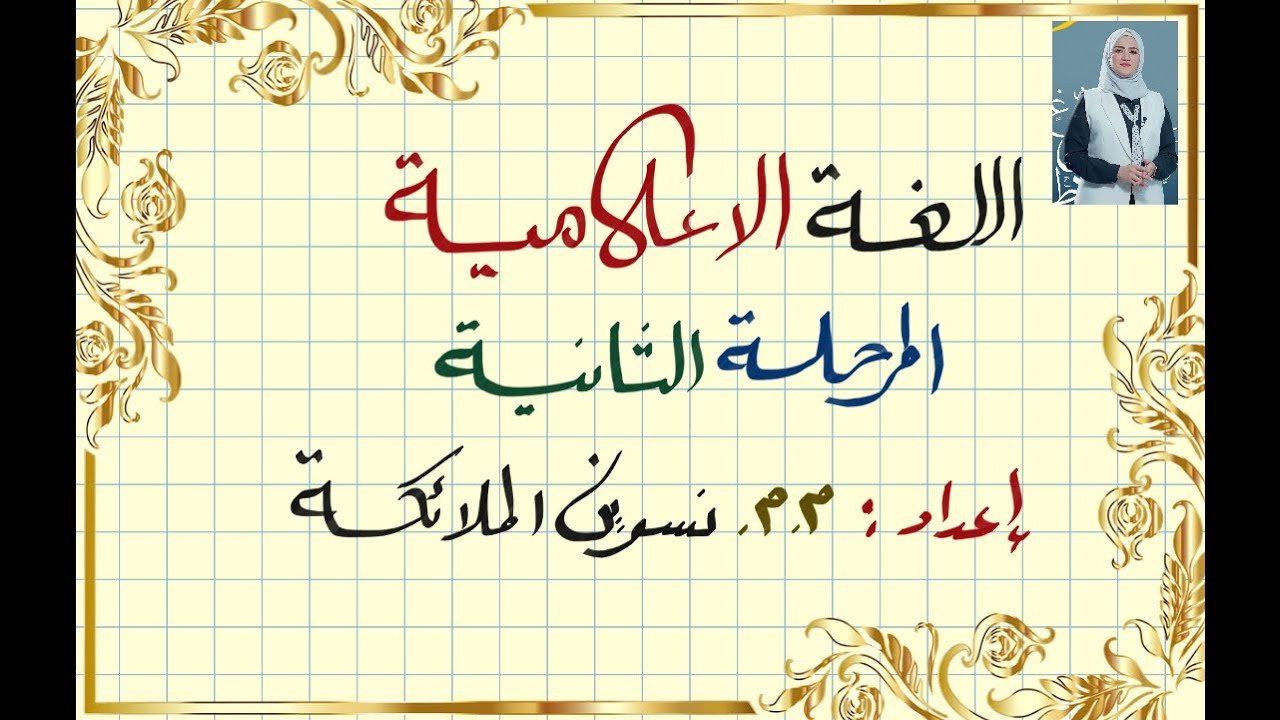 اللغة الاعلامية
المرحلة الثانية
إعداد : م.م. نسرين الملائكة